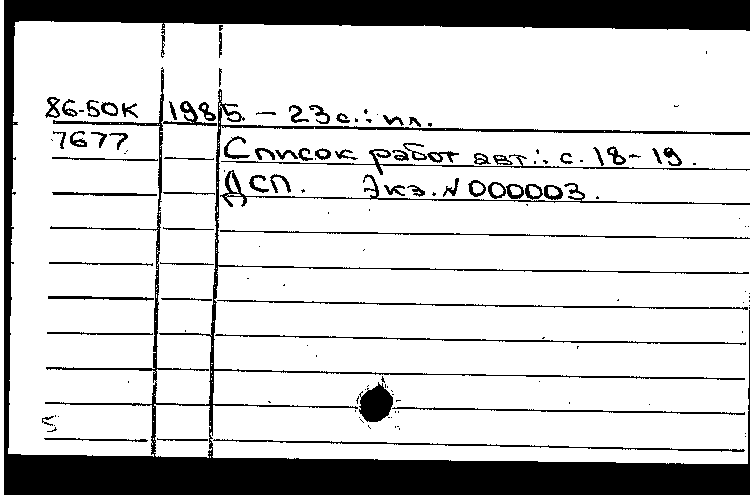 86-50К 1985. - 23 с.: ил.
7677 Список работ авт.: с. 18-19.
ДСП. Экз. N 000003.
5